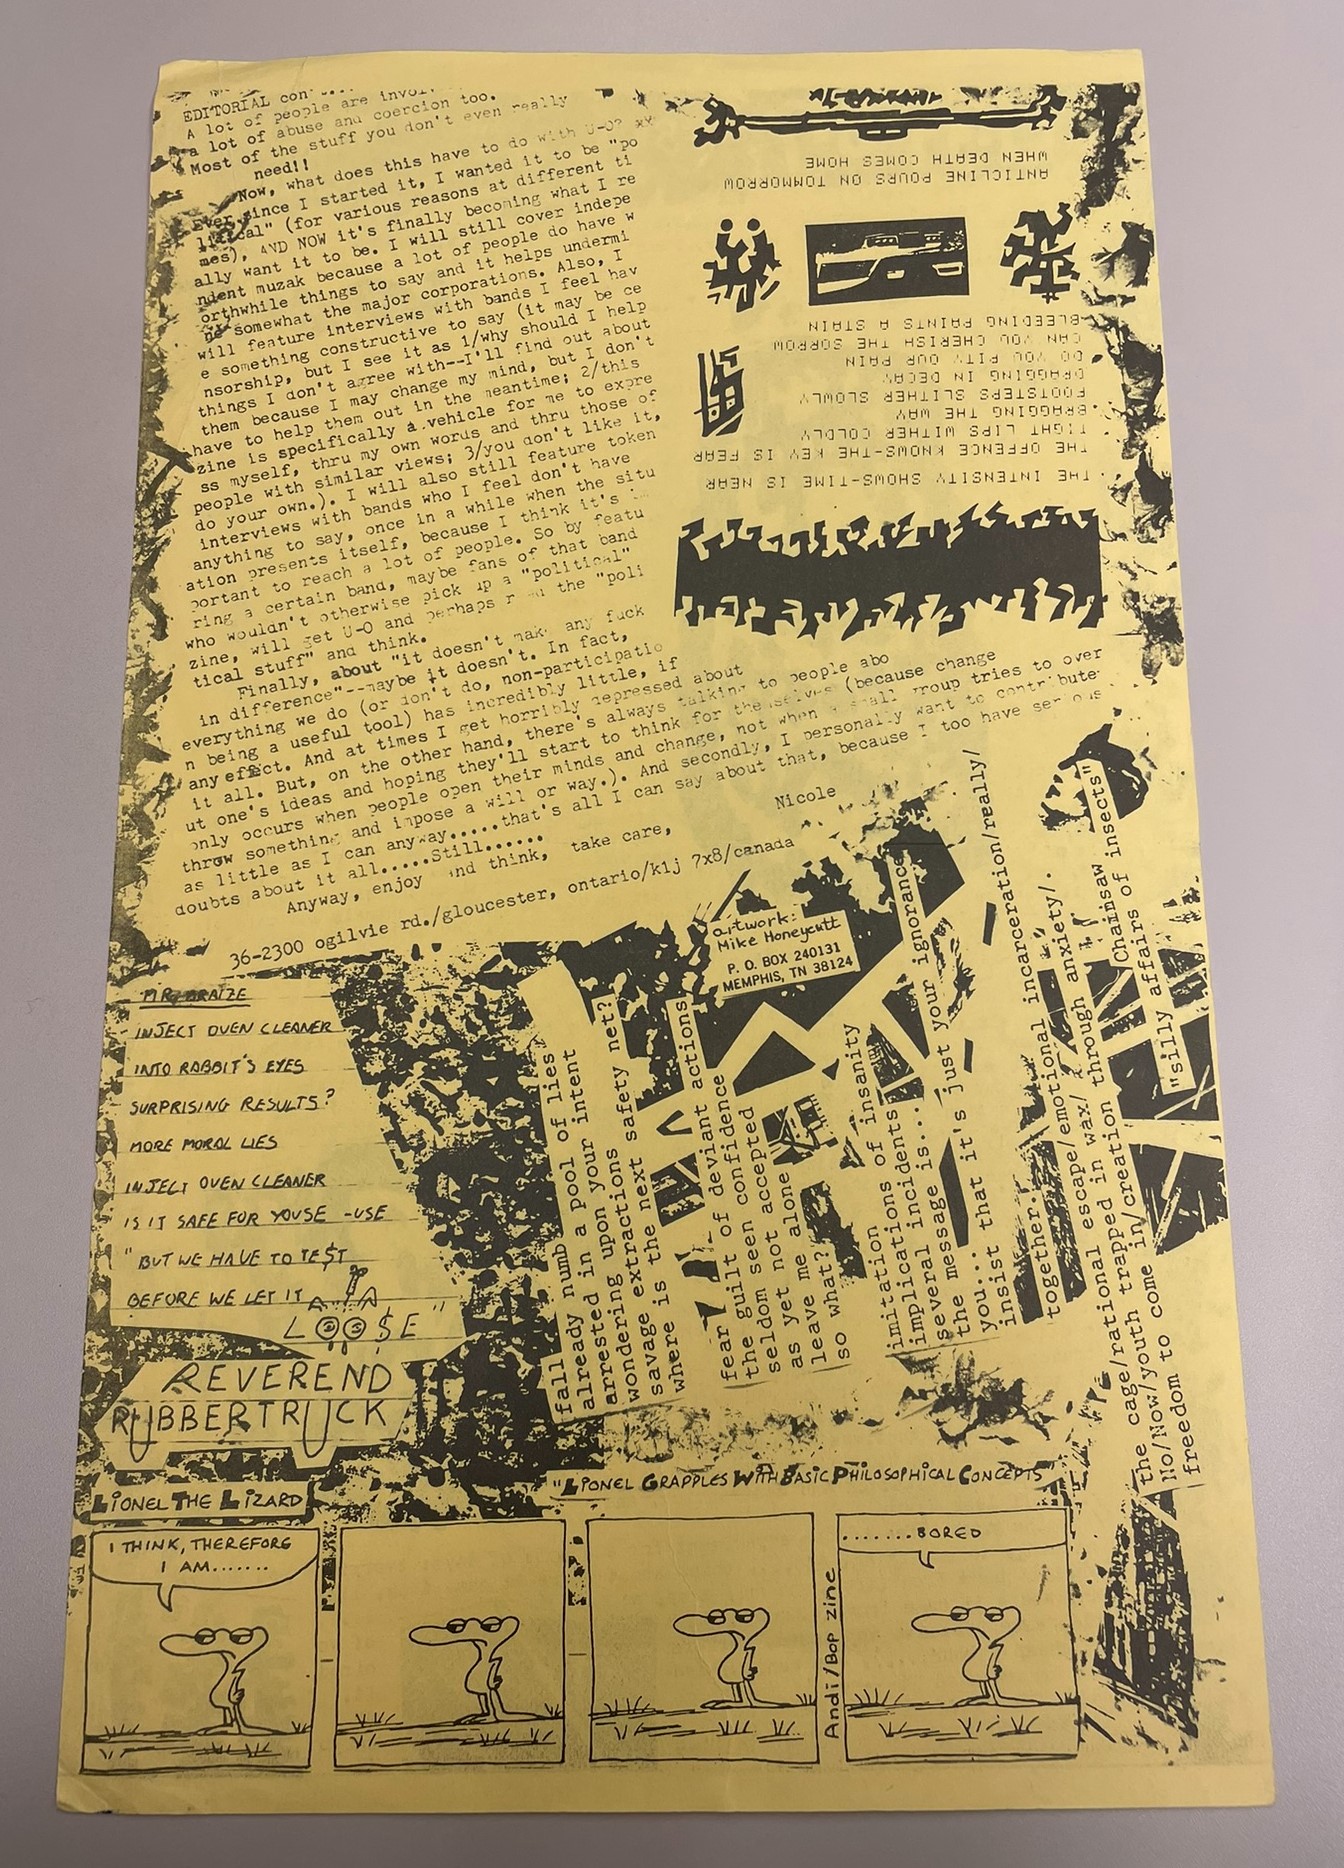 EDITORIAL con
A lot of people are invol
a lot of abuse and coercion too.
Most of the stuff you don't even really
need!!
Now, what does this have to do with U-O?
Ever since I started it, I wanted it to be "po
litical" (for various reasons at different ti
mes), AND NOW it's finally becoming what I re
ally want it to be. I will still cover indepe
ndent muzak because a lot of people do have w
orthwhile things to say and it helps undermi
ne somewhat the major corporations. Also, I
will feature interviews with bands I feel hav
e something constructive to say (it may be ce
nsorship, but I see it as 1/why should I help
things I don't agree with--I'll find out about
them because I may change my mind, but I don't
have to help them out in the meantime; 2/this
zine is specifically a vehicle for me to expre
ss myself, thru my own words and thru those of
people with similar views; 3/you don't like it,
do your own.). I will also still feature token
interviews with bands who I feel don't have
anything to say, once in a while when the situ
ation presents itself, because I think it's
portant to reach a lot of people. So by featu
ring a certain band, maybe fans of that band
who wouldn't otherwise pick up a "political"
zine, will get U-O and perhaps read the "poli
tical stuff" and think.
Finally, about "it doesn't make any fuck
in difference"--maybe it doesn't. In fact,
everything we do (or don't do, non-participatio
n being a useful tool) has incredibly little, if
any effect. And at times I get horribly depressed about
it all. But, on the other hand, there's always talking to people abo
ut one's ideas and hoping they'll start to think for themselves (because change
only occurs when people open their minds and change, not when a small group tries to over
throw something and impose a will or way.). And secondly, I personally want to contribute
as little as I can anyway.....that's all I can say about that, because I too have serious
doubts about it all.....Still......
Anyway, enjoy and think, take care,
Nicole
36-2300 ogilvie rd./gloucester, ontario/k1j 7x8/canada
THE INTENSITY SHOWS-TIME IS NEAR
THE OFFENCE KNOWS-THE KEY IS FEAR
TIGHT LIPS WITHER COLDLY
DRAGGING THE WAY
FOOTSTEPS SLITHER SLOWLY
DRAGGING IN DECAY
DO YOU PITY OUR PAIN
CAN YOU CHERISH THE SORROW
BLEEDING PAINTS A STAIN
ANTICLINE POURS ON TOMMORROW
WHEN DEATH COMES HOME
artwork:
Mike Honeycutt
P. O. BOX 240131
MEMPHIS, TN 38124
MR. BRAIZE
INJECT OVEN CLEANER
INTO RABBIT'S EYES
SURPRISING RESULTS?
MORE MORAL LIES
INJECT OVEN CLEANER
IS IT SAFE FOR YOUSE -USE
"BUT WE HAVE TO TE$T
BEFORE WE LET IT
LOO$E"
REVEREND
RUBBERTRUCK
fall numb
already in a pool of lies
arrested in your intent
wondering upon safety net?
savage extractions
where is the next
fear of deviant actions
the guilt of confidence
seldom seen accepted
as yet not alone
leave me
so what?
imitation of insanity
implications
several incidents
the message is...
you.... it's just your ignorance
insist that
together...
the cage/rational escape/emotional incarceration/really/
No/Now/youth trapped in wax/ through anxiety/.
freedom to come in/creation
Chainsaw
"silly affairs of insects"
LIONEL THE LIZARD
"LIONEL GRAPPLES WITH BASIC PHILOSOPHICAL CONCEPTS"
I THINK, THEREFORE
I AM.......
.......BORED
Andi/Bop zine